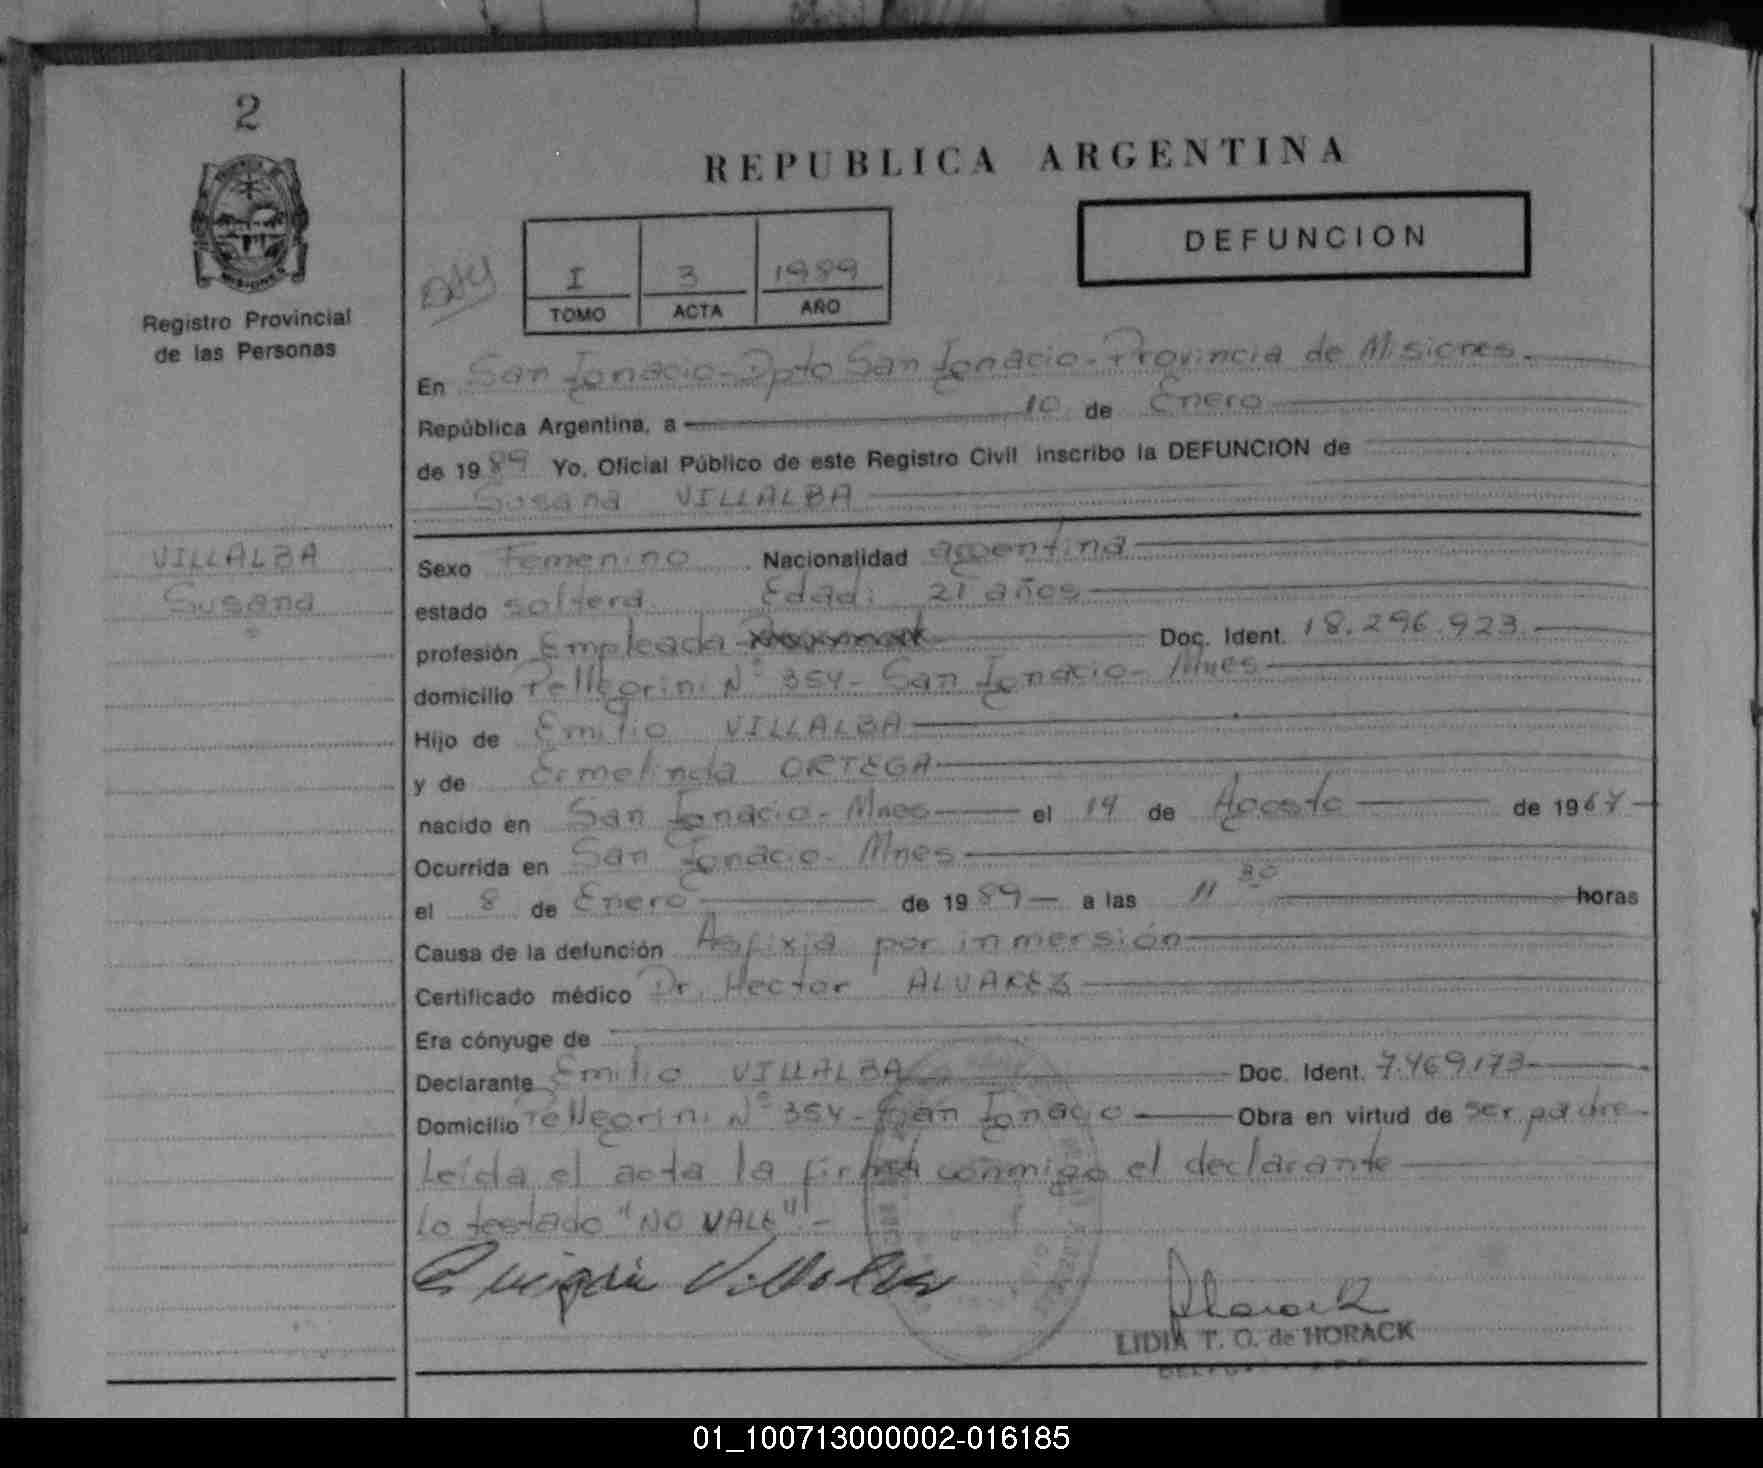 2
REPUBLICA ARGENTINA
DEFUNCION
I 3 1989
TOMO ACTA AÑO
Registro Provincial
de las Personas
En San Ignacio - Dpto San Ignacio - Provincia de Misiones.
República Argentina, a 10 de Enero
de 1989 Yo, Oficial Público de este Registro Civil inscribo la DEFUNCION de
Susana VILLALBA
VILLALBA
Susana
Sexo Femenino Nacionalidad argentina
estado soltera Edad: 21 años
profesión Empleada Doc. Ident. 18.296.923
domicilio Pellegrini N° 354 - San Ignacio - Mnes
Hijo de Emilio VILLALBA
y de Ermelinda ORTEGA
nacido en San Ignacio - Mnes el 19 de Agosto de 1967
Ocurrida en San Ignacio - Mnes
el 8 de Enero de 1989 a las 11 30 horas
Causa de la defunción Asfixia por inmersión
Certificado médico Dr. Hector ALVAREZ
Era cónyuge de
Declarante Emilio VILLALBA Doc. Ident. 7.469.173
Domicilio Pellegrini N° 354 - San Ignacio Obra en virtud de ser padre
Leída el acta la firma conmigo el declarante
lo testado "NO VALE".-
Villalba
LIDIA T. O. de HORACK
01_100713000002-016185